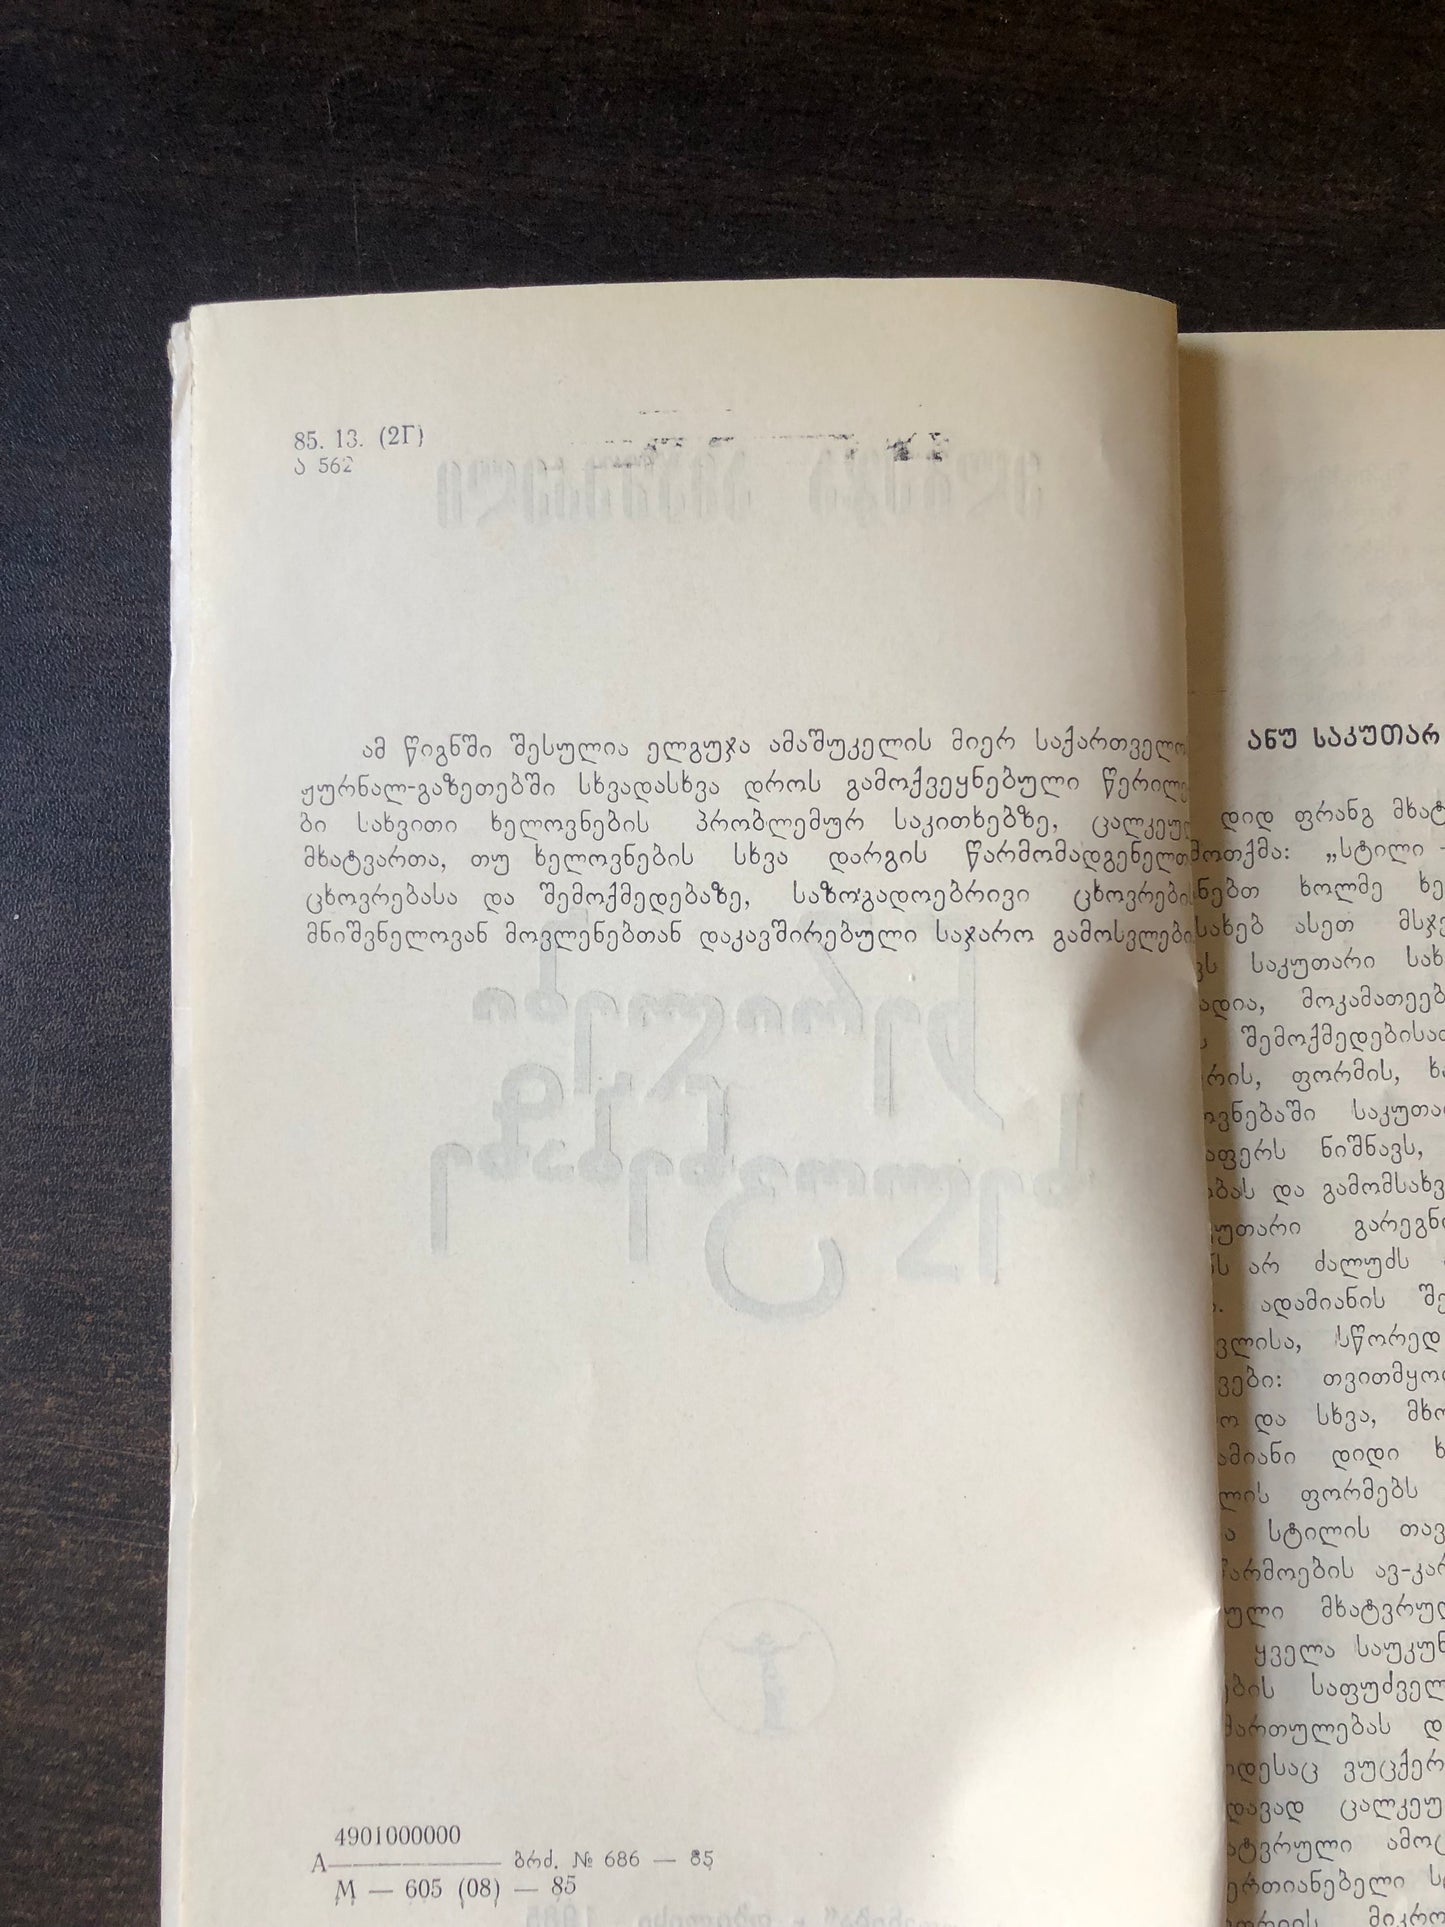 85. 13. (2Г)
ა 562
ამ წიგნში შესულია ელგუჯა ამაშუკელის მიერ საქართველო
ჟურნალ-გაზეთებში სხვადასხვა დროს გამოქვეყნებული წერილე
ბი სახვითი ხელოვნების პრობლემურ საკითხებზე, ცალკეულ
მხატვართა, თუ ხელოვნების სხვა დარგის წარმომადგენელთ
ცხოვრებასა და შემოქმედებაზე, საზოგადოებრივი ცხოვრების
მნიშვნელოვან მოვლენებთან დაკავშირებული საჯარო გამოსვლები
4901000000
А———— ბრძ. № 686 — 85
М — 605 (08) — 85
ანუ საკუთარ
დიდ ფრანგ მხატ
მოთქმა: „სტილი -
ნებთ ხოლმე ხე
სახებ ასეთ მსჯე
ვს საკუთარი სახ
ადია, მოკამათეებ
შემოქმედებისათ
რის, ფორმის, ხა
ოვნებაში საკუთა
აფერს ნიშნავს,
ბას და გამომსახვ
კუთარი გარეგნ
ნს არ ძალუძს
ა. ადამიანის შე
ვლისა, სწორედ
ვები: თვითმყო
ო და სხვა, მხო
ამიანი დიდი ხ
ლის ფორმებს
ა სტილის თავ
წარმოების ავ-კარ
ული მხატვრულ
ყველა საუკუნ
ბის საფუძველ
მართულებას დ
დესაც ვუცქერ
დავად ცალკეუ
ატვრული ამოც
ერთიანებელი ს
ორიის მიკრო